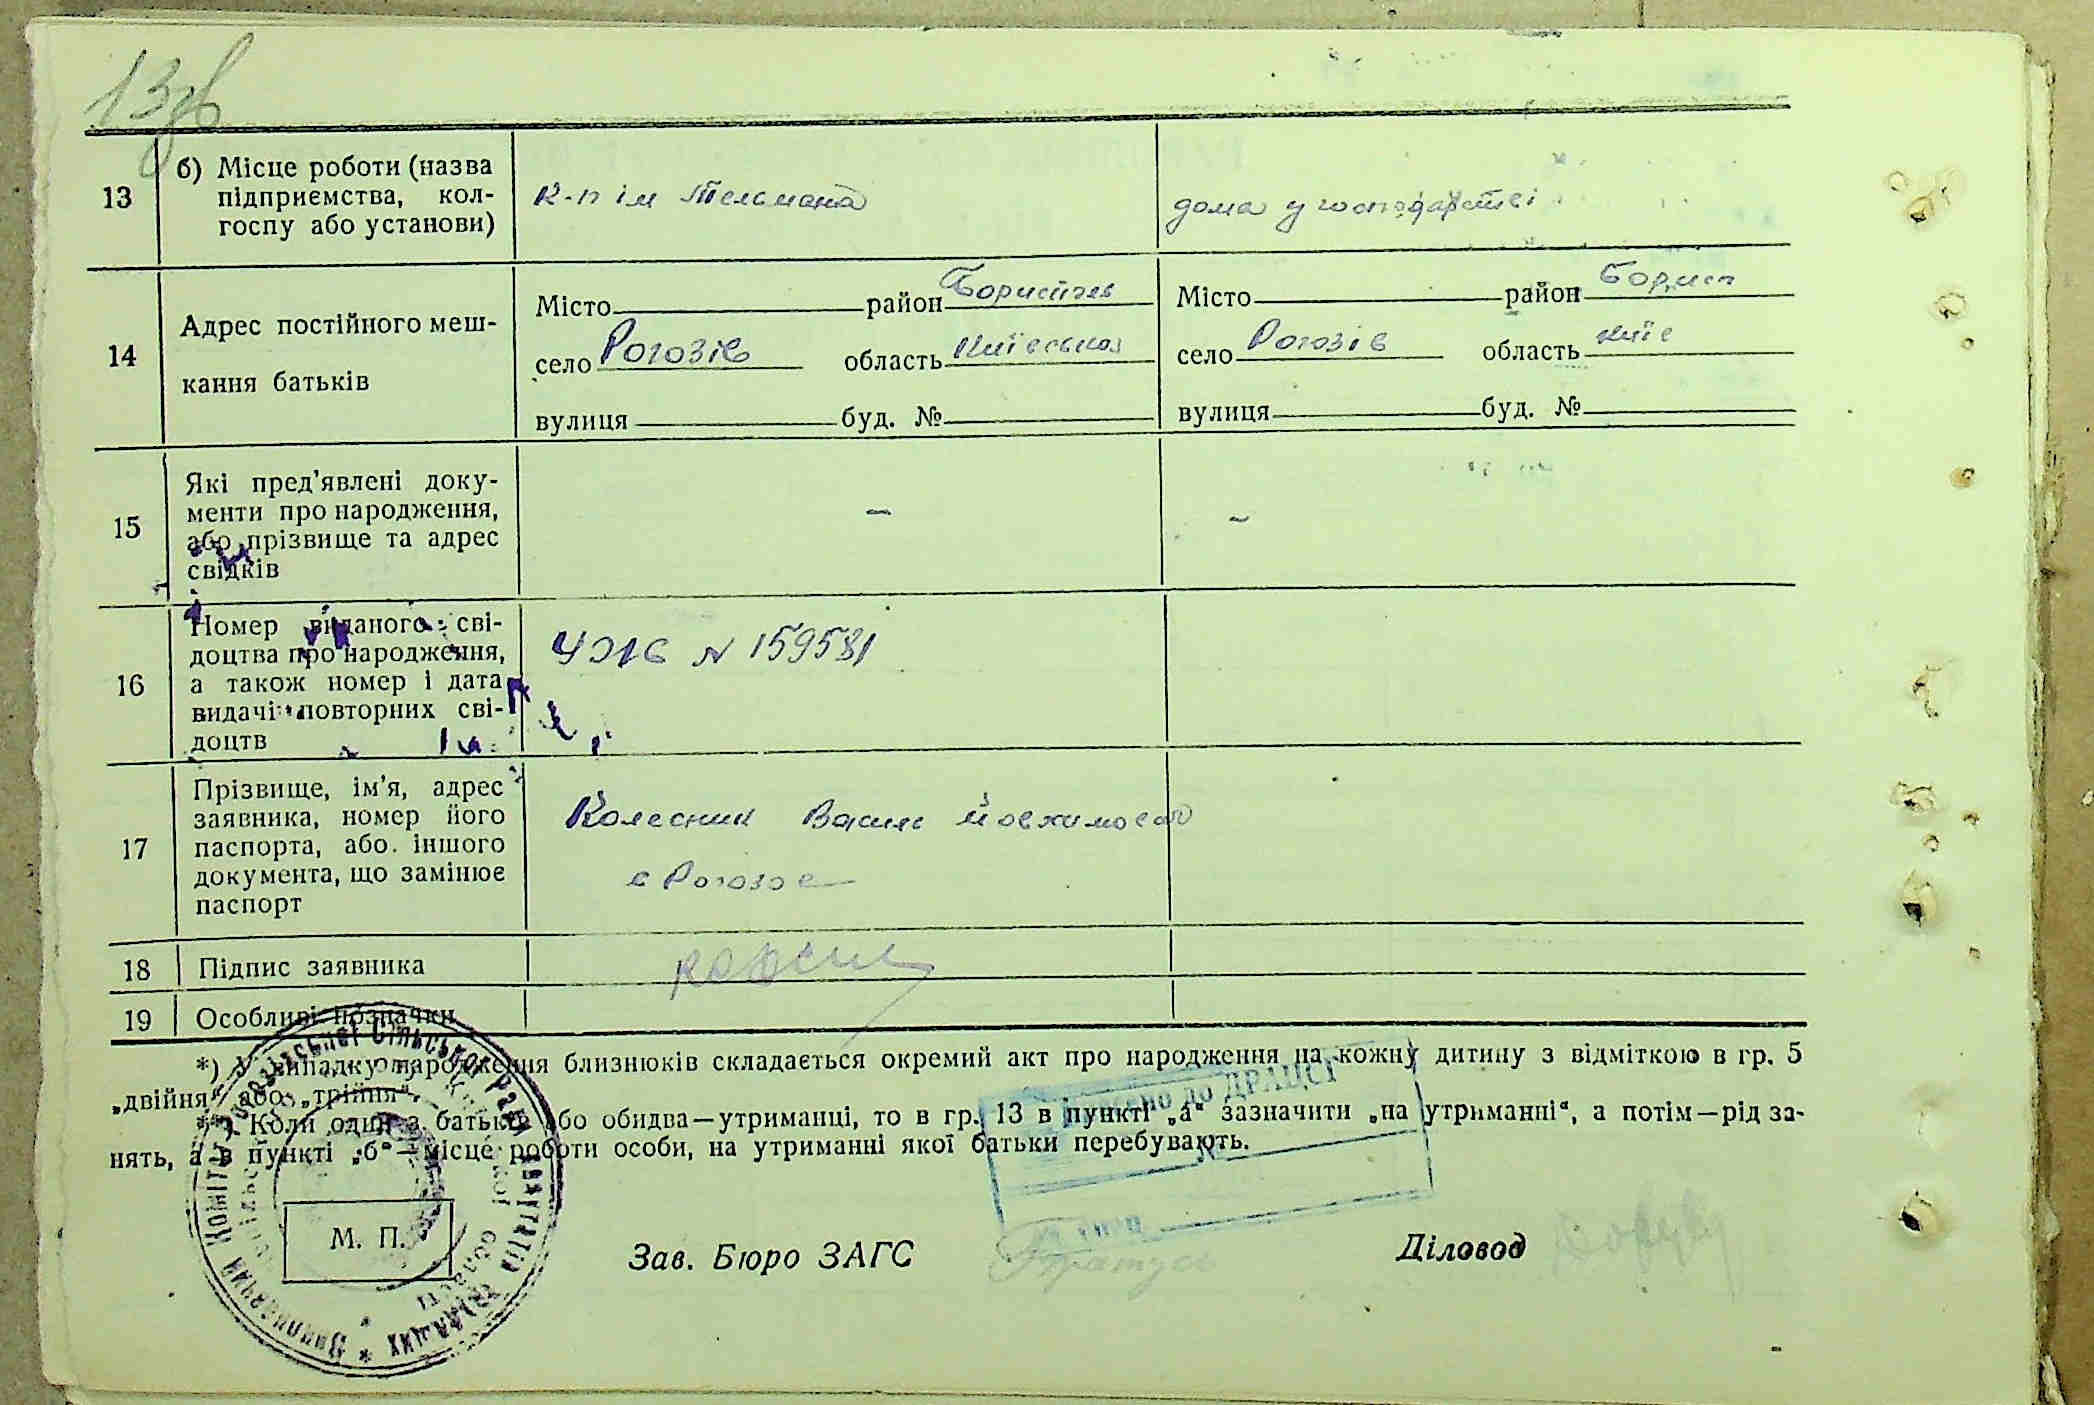 13зв
13
б) Місце роботи (назва
підприємства, кол-
госпу або установи)
к-п ім Тельмана
дома у господарстві
14
Адрес постійного меш-
кання батьків
Місто район Бориспів
село Рогозів область Київська
вулиця буд. №
Місто район Борисп
село Рогозів область Київ
вулиця буд. №
15
Які пред'явлені доку-
менти про народження,
або прізвище та адрес
свідків
–
–
16
Номер виданого сві-
доцтва про народження,
а також номер і дата
видачі повторних сві-
доцтв
N 159581
17
Прізвище, ім'я, адрес
заявника, номер його
паспорта, або іншого
документа, що замінює
паспорт
Колесник Василь
с Рогозов
18
Підпис заявника
19
Особливі позначки
*) У випадку народження близнюків складається окремий акт про народження на кожну дитину з відміткою в гр. 5
„двійня“ або „трійня“.
**) Коли один з батьків або обидва—утриманці, то в гр. 13 в пункті „а“ зазначити „на утриманні“, а потім—рід за-
нять, а в пункті „б“—місце роботи особи, на утриманні якої батьки перебувають.
до ДРАЦСГ
№
М. П.
Зав. Бюро ЗАГС
Діловод